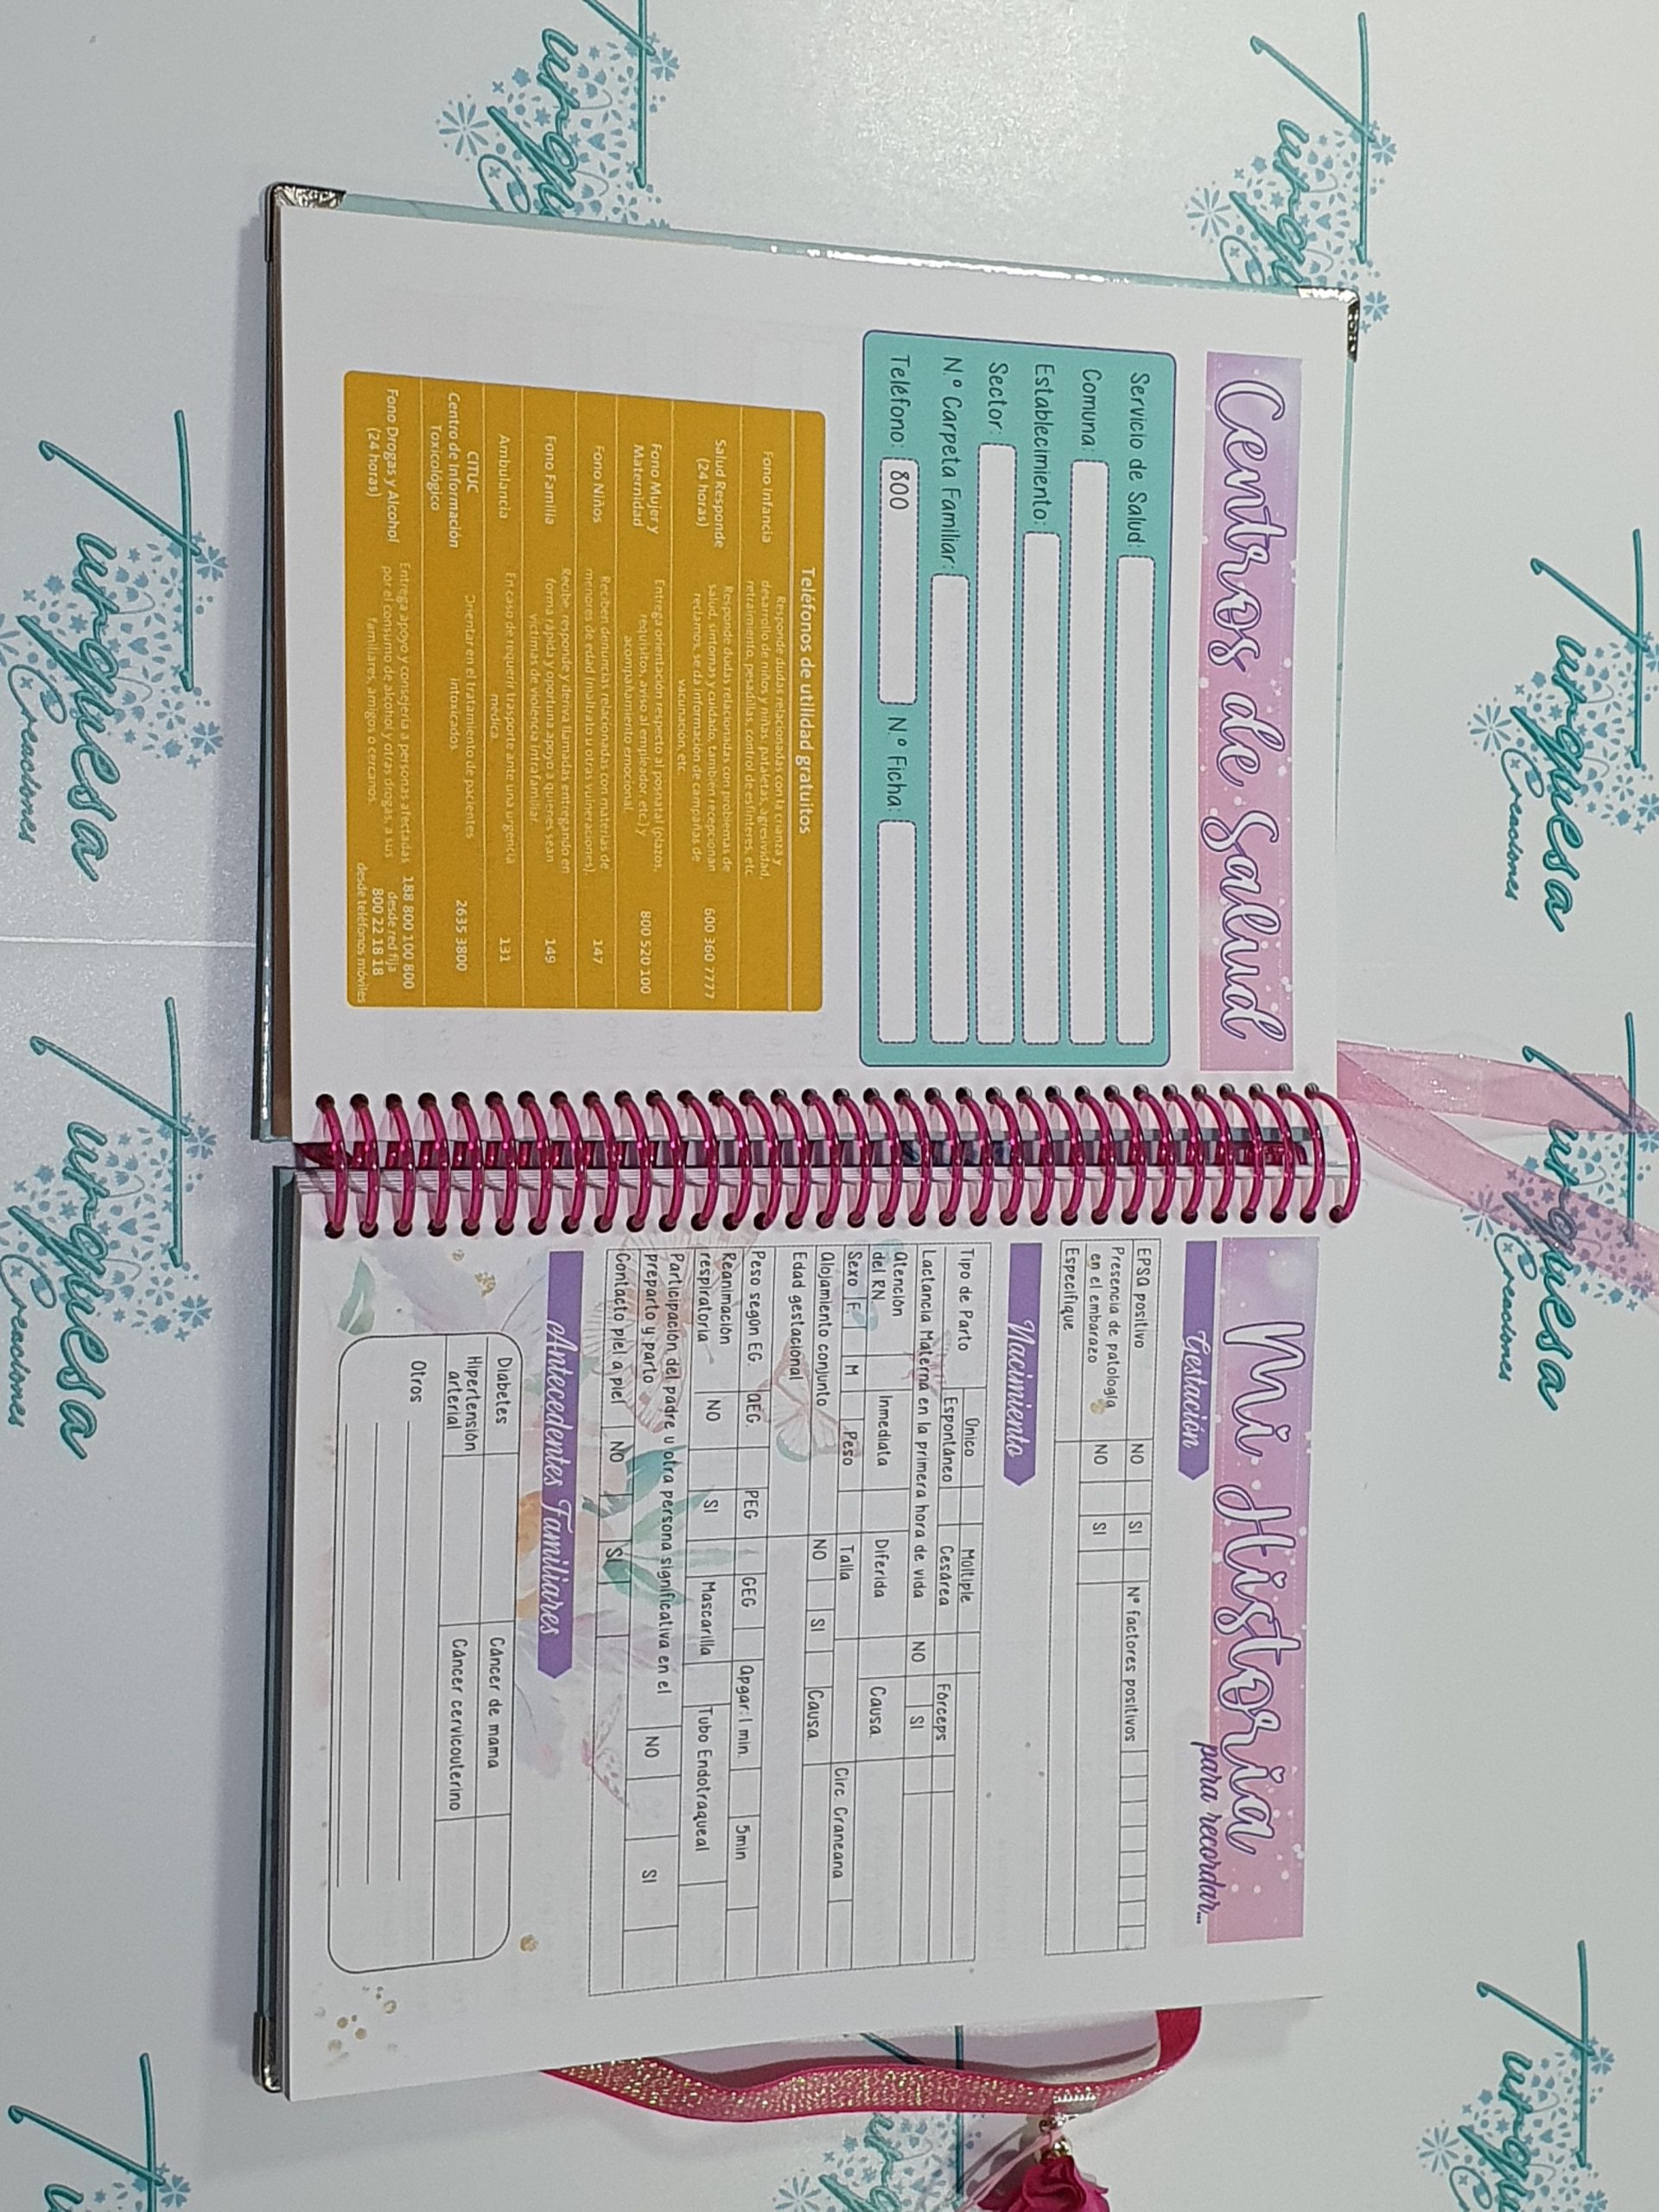 Centros de Salud
Servicio de Salud:
Comuna:
Establecimiento:
Sector:
N.º Carpeta Familiar:
Teléfono: 800 N.º Ficha:
Teléfonos de utilidad gratuitos
Fono Infancia
Responde dudas relacionadas con la crianza y
desarrollo de niños y niñas, pataletas, agresividad,
retraimiento, pesadillas, control de esfínteres, etc
Salud Responde
(24 horas)
Responde dudas relacionadas con problemas de
salud, síntomas y cuidado, también recepcionan
reclamos, se da información de campañas de
vacunación, etc.
600 360 7777
Fono Mujer y
Maternidad
Entrega orientación respecto al posnatal (plazos,
requisitos, aviso al empleador, etc) y
acompañamiento emocional.
800 520 100
Fono Niños
Reciben denuncias relacionadas con materias de
menores de edad (maltrato u otras vulneraciones).
147
Fono Familia
Recibe, responde y deriva llamadas entregando en
forma rápida y oportuna apoyo a quienes sean
víctimas de violencia intrafamiliar.
149
Ambulancia
En caso de requerir trasporte ante una urgencia
médica.
131
CITUC
Centro de Información
Toxicológico
Orientar en el tratamiento de pacientes
intoxicados
2635 3800
Fono Drogas y Alcohol
(24 horas)
Entrega apoyo y consejería a personas afectadas
por el consumo de alcohol y otras drogas, a sus
familiares, amigos o cercanos.
188 800 100 800
desde red fija
800 22 18 18
desde teléfonos móviles
Mi Historia
para recordar...
Gestación
EPSA positivo NO SI Nº factores positivos
Presencia de patología
en el embarazo NO SI
Especifique
Nacimiento
Tipo de Parto Único Múltiple
Espontáneo Cesárea Fórceps
Lactancia Materna en la primera hora de vida NO SI
Atención
del RN Inmediata Diferida Causa
Sexo F M Peso Talla Circ. Craneana
Alojamiento conjunto NO SI Causa
Edad gestacional
Peso según EG AEG PEG GEG Apgar: 1 min. 5min
Reanimación
respiratoria NO SI Mascarilla Tubo Endotraqueal
Participación del padre u otra persona significativa en el
preparto y parto NO SI
Contacto piel a piel NO SI
Antecedentes Familiares
Diabetes Cáncer de mama
Hipertensión
arterial Cáncer cervicouterino
Otros
Turquesa
Creaciones
Turquesa
Creaciones
Turquesa
Creaciones
Turquesa
Creaciones